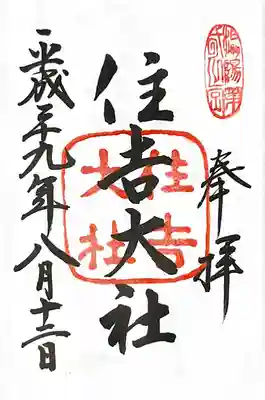 奉拝
住吉大社
住吉大社
平成二十九年八月十二日